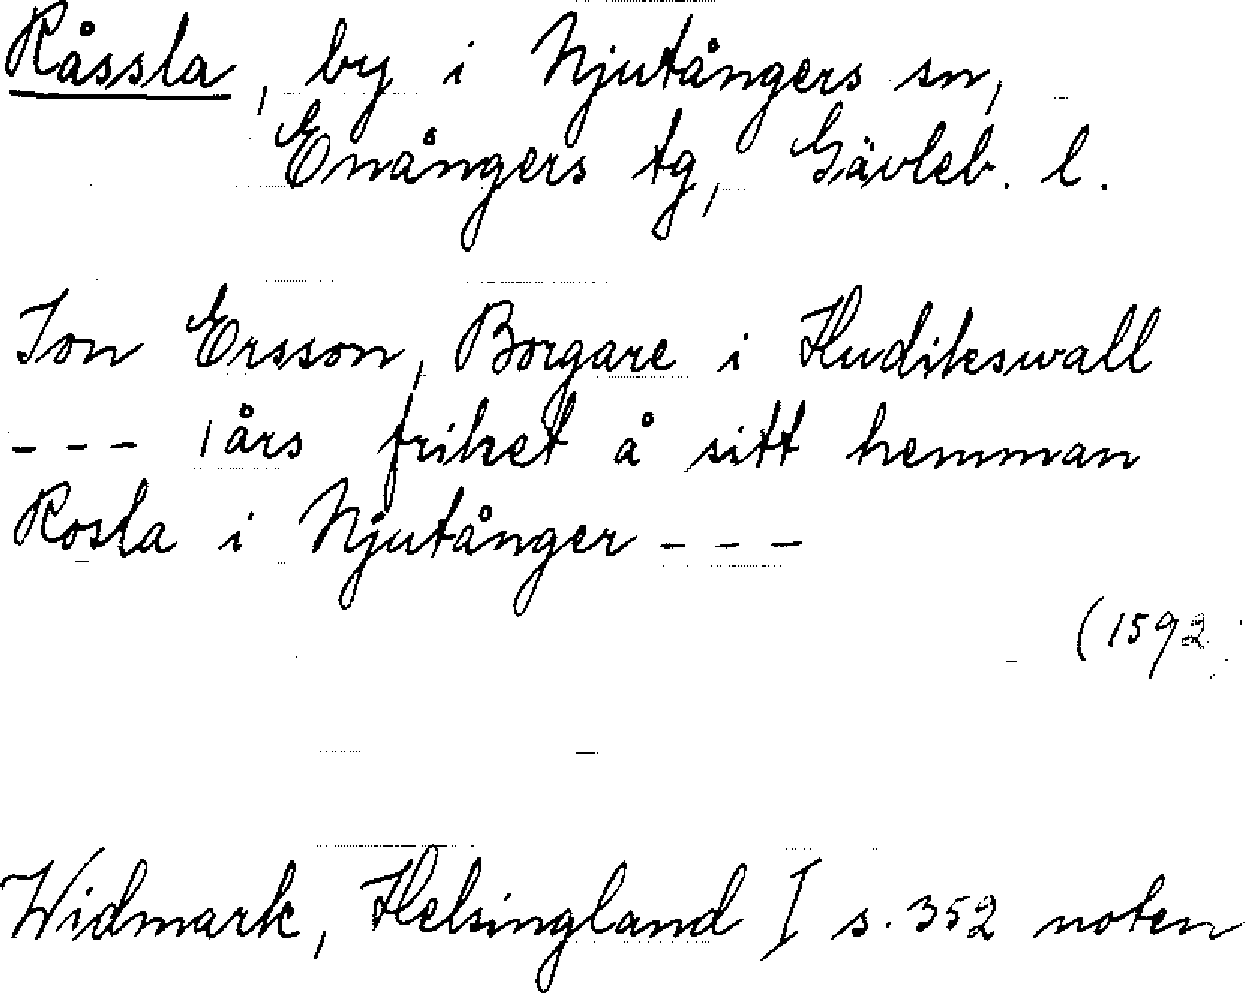 Råssla, by i Njutångers sn,
Enångers tg, Gävleb. l.
Jon Ersson, Borgare i Hudikswall
--- 1 års frihet å sitt hemman
Rosla i Njutånger ---
(1592
Widmark, Helsingland I s. 352 noten